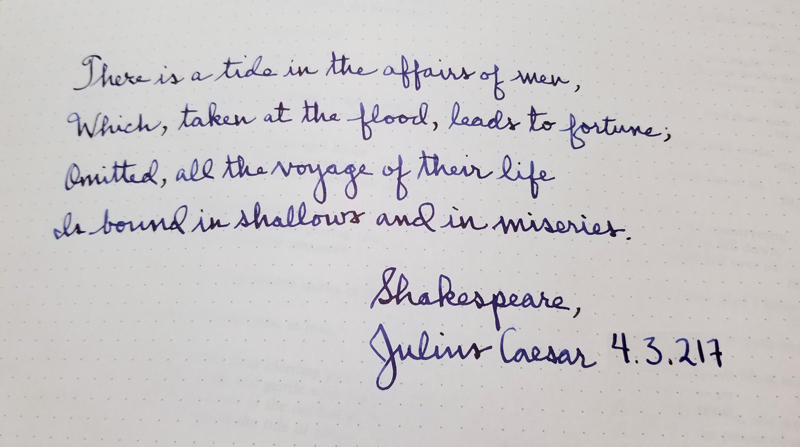 There is a tide in the affairs of men,
Which, taken at the flood, leads to fortune;
Omitted, all the voyage of their life
Is bound in shallows and in miseries.
Shakespeare,
Julius Caesar 4.3.217